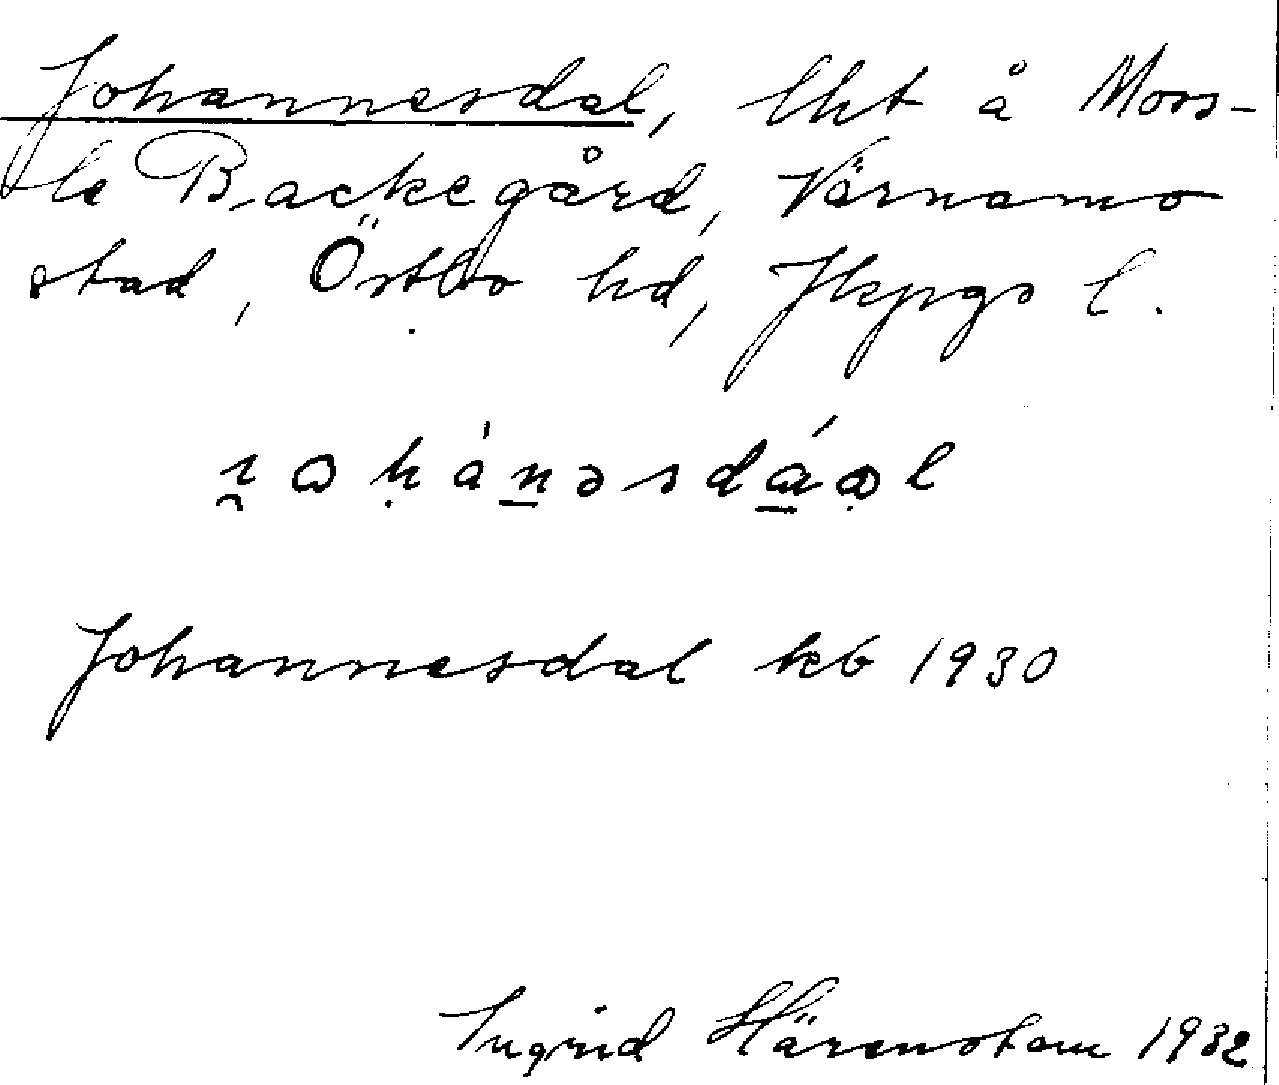 Johannesdal, lht å Moss-
le Backegård, Värnamo
stad, Östbo hd, Jkpgs l.
Johannesdal kb 1930
Ingrid Härenstam 1932